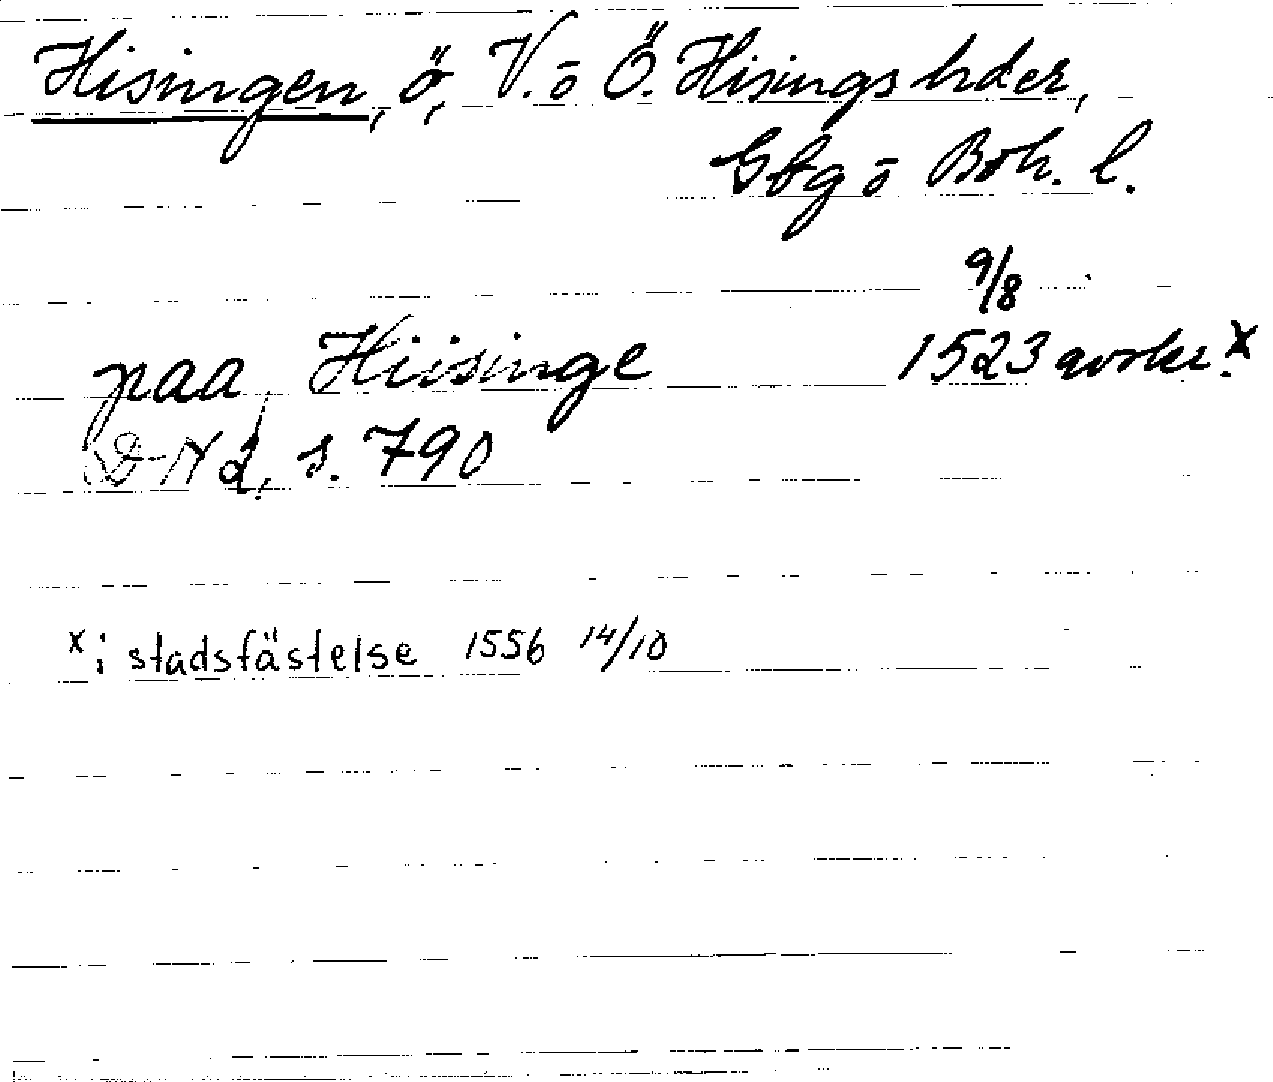 Hisingen, ö, V. o Ö. Hisings hder,
Gbg o Boh. l.
9/8
paa Hiisinge 1523 avskr. x
DN 2, s. 790
x: i stadsfästelse 1556 14/10